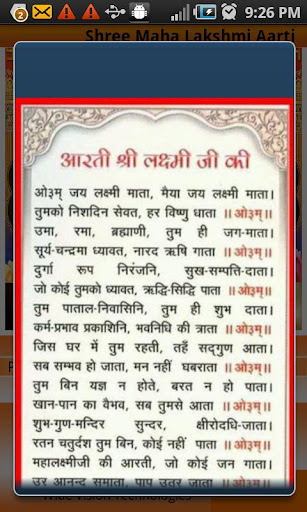 2
9:26 PM
Shree Maha Lakshmi Aarti
आरती श्री लक्ष्मी जी की
ओ३म् जय लक्ष्मी माता, मैया जय लक्ष्मी माता।
तुमको निशदिन सेवत, हर विष्णु धाता ॥ओ३म्॥
उमा, रमा, ब्रह्माणी, तुम ही जग-माता।
सूर्य-चन्द्रमा ध्यावत, नारद ऋषि गाता ॥ओ३म्॥
दुर्गा रूप निरंजनि, सुख-सम्पति-दाता।
जो कोई तुमको ध्यावत, ऋद्धि-सिद्धि पाता ॥ओ३म्॥
तुम पाताल-निवासिनि, तुम ही शुभ दाता।
कर्म-प्रभाव प्रकाशिनि, भवनिधि की त्राता ॥ओ३म्॥
जिस घर में तुम रहती, तहँ सद्गुण आता।
सब सम्भव हो जाता, मन नहीं घबराता ॥ओ३म्॥
तुम बिन यज्ञ न होते, बरत न हो पाता।
खान-पान का वैभव, सब तुमसे आता ॥ओ३म्॥
शुभ-गुण-मन्दिर सुन्दर, क्षीरोदधि-जाता।
रतन चतुर्दश तुम बिन, कोई नहीं पाता ॥ओ३म्॥
महालक्ष्मीजी की आरती, जो कोई जन गाता।
उर आनन्द समाता, पाप उतर जाता ॥ओ३म्॥
P
Wide Vision Technologies